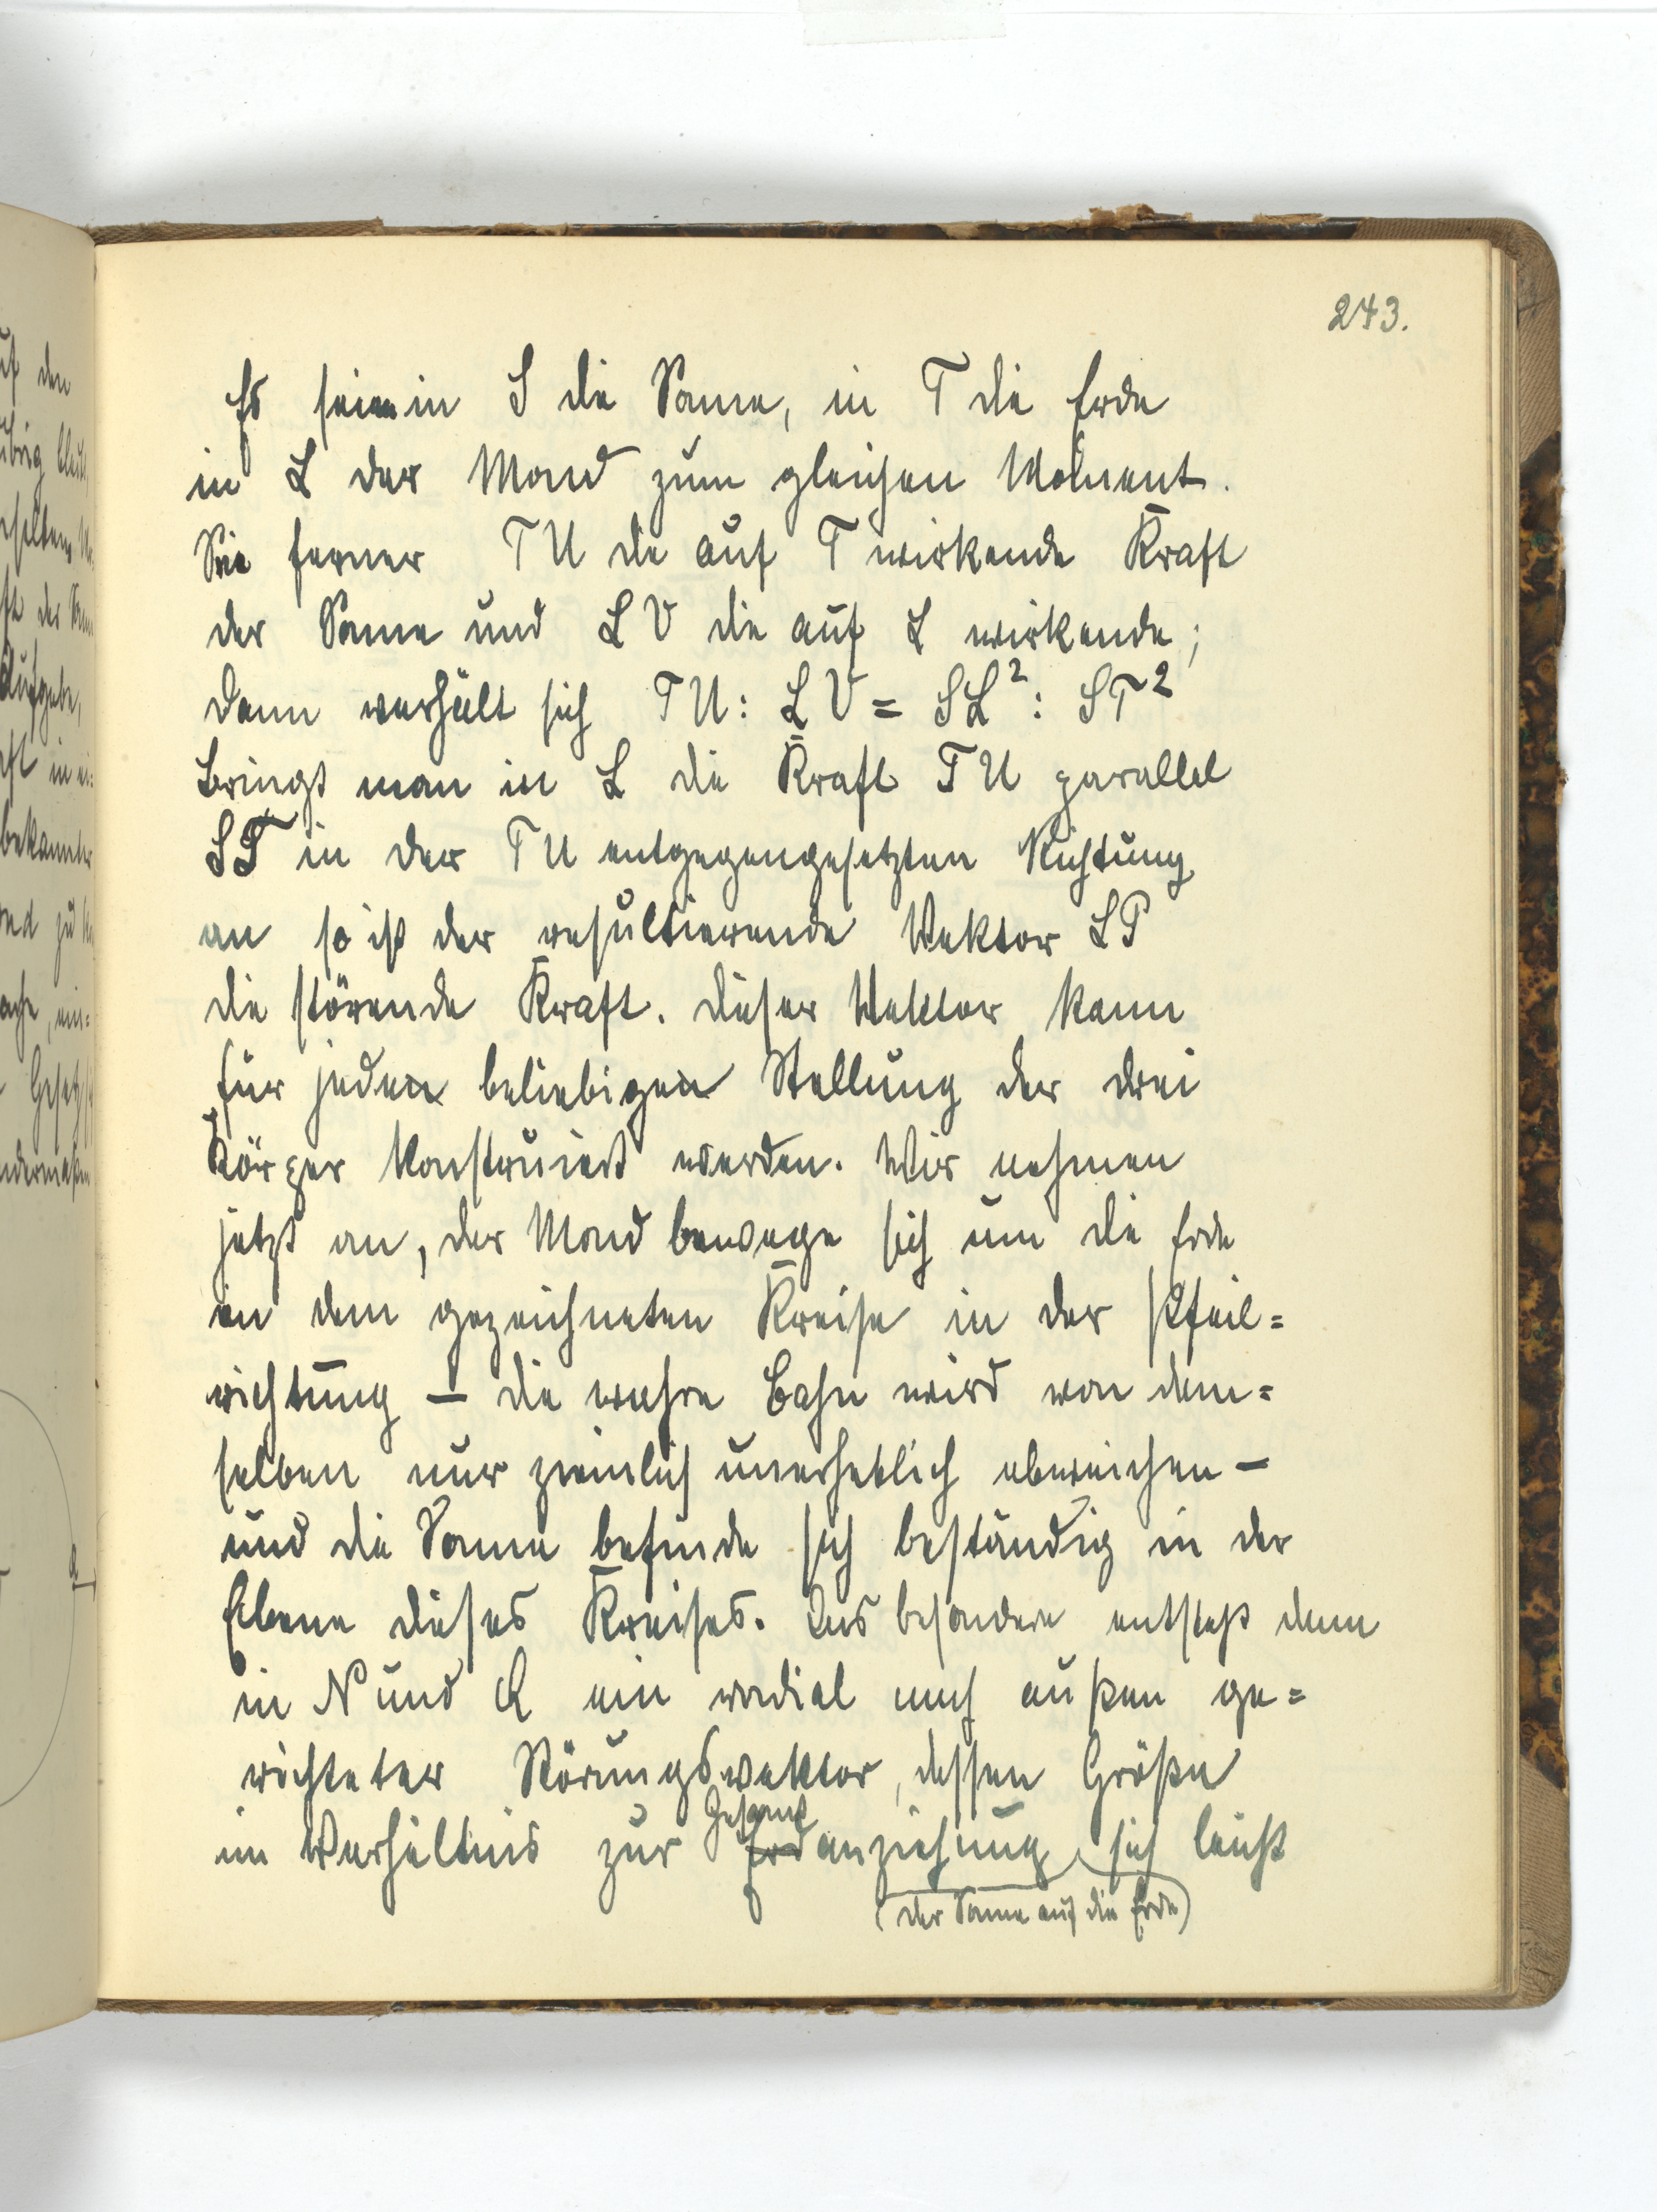 243.
Es seien in S die Sonne, in T die Erde
in L der Mond zum gleichen Moment.
Sei ferner TU die auf T wirkende Kraft
der Sonne und LV die auf L wirkende;
dann verhält sich TU : LV = SL² : ST²
bringt man in L die Kraft TU parallel
ST in der TU entgegengesetzten Richtung
an so ist der resultierende Vektor LP
die störende Kraft. Dieser Vektor kann
für jeden beliebigen Stellung der drei
Körper konstruiert werden. Wir nehmen
jetzt an, der Mond bewege sich um die Erde
in dem gezeichneten Kreise in der Pfeil=
richtung – die wahre Bahn wird von dem=
selben nur ziemlich unerheblich abweichen –
und die Sonne befinde sich beständig in der
Ebene dieses Kreises. Ins besondere entsteht dann
in N und Q ein radial nach außen ge=
richteter Störungsvektor, dessen Größe
Gesamt
im Verhältnis zur Erdanziehung sich leicht
(der Sonne auf die Erde)